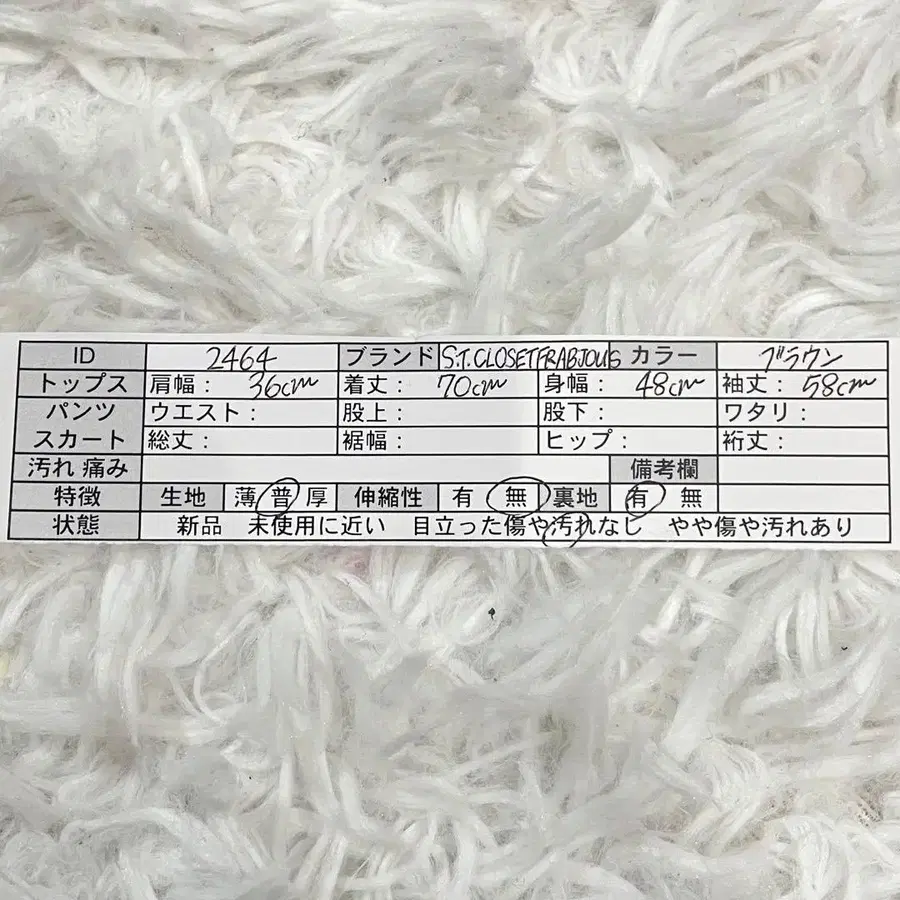 ID 2464 ブランド S.T.CLOSETFRABJOUS カラー ブラウン
トップス 肩幅： 36cm 着丈： 70cm 身幅： 48cm 袖丈： 58cm
パンツ ウエスト： 股上： 股下： ワタリ：
スカート 総丈： 裾幅： ヒップ： 裄丈：
汚れ 痛み 備考欄
特徴 生地 薄 普 厚 伸縮性 有 無 裏地 有 無
状態 新品 未使用に近い 目立った傷や汚れなし やや傷や汚れあり